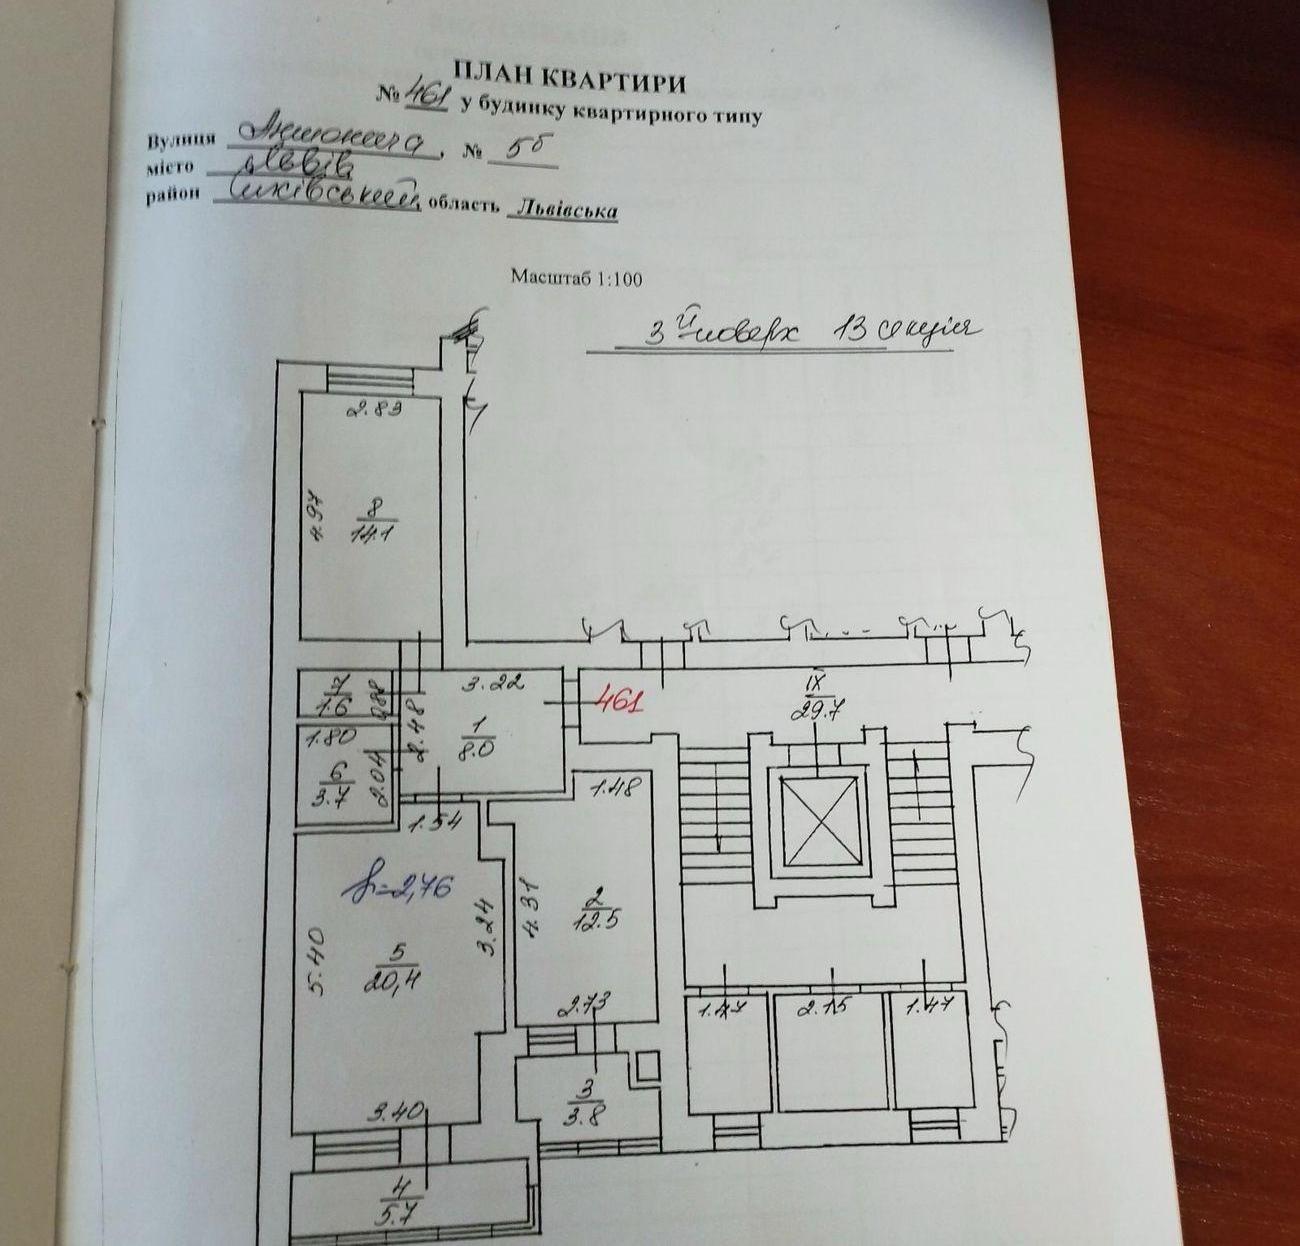 ПЛАН КВАРТИРИ
№ 461 у будинку квартирного типу
Вулиця Антонича, № 5б
місто Львів
район Сихівський, область Львівська
Масштаб 1:100
3й поверх 13 секція
2.83
4.97
8
14.1
7
1.6
0.88
3.22
461
IX
29.7
2.48
1
8.0
1.80
6
3.7
2.04
1.54
1.48
h=2,76
4.31
2
12.5
3.24
5.40
5
20,4
2.73
1.47
2.15
1.47
3
3.8
3.40
4
5.7